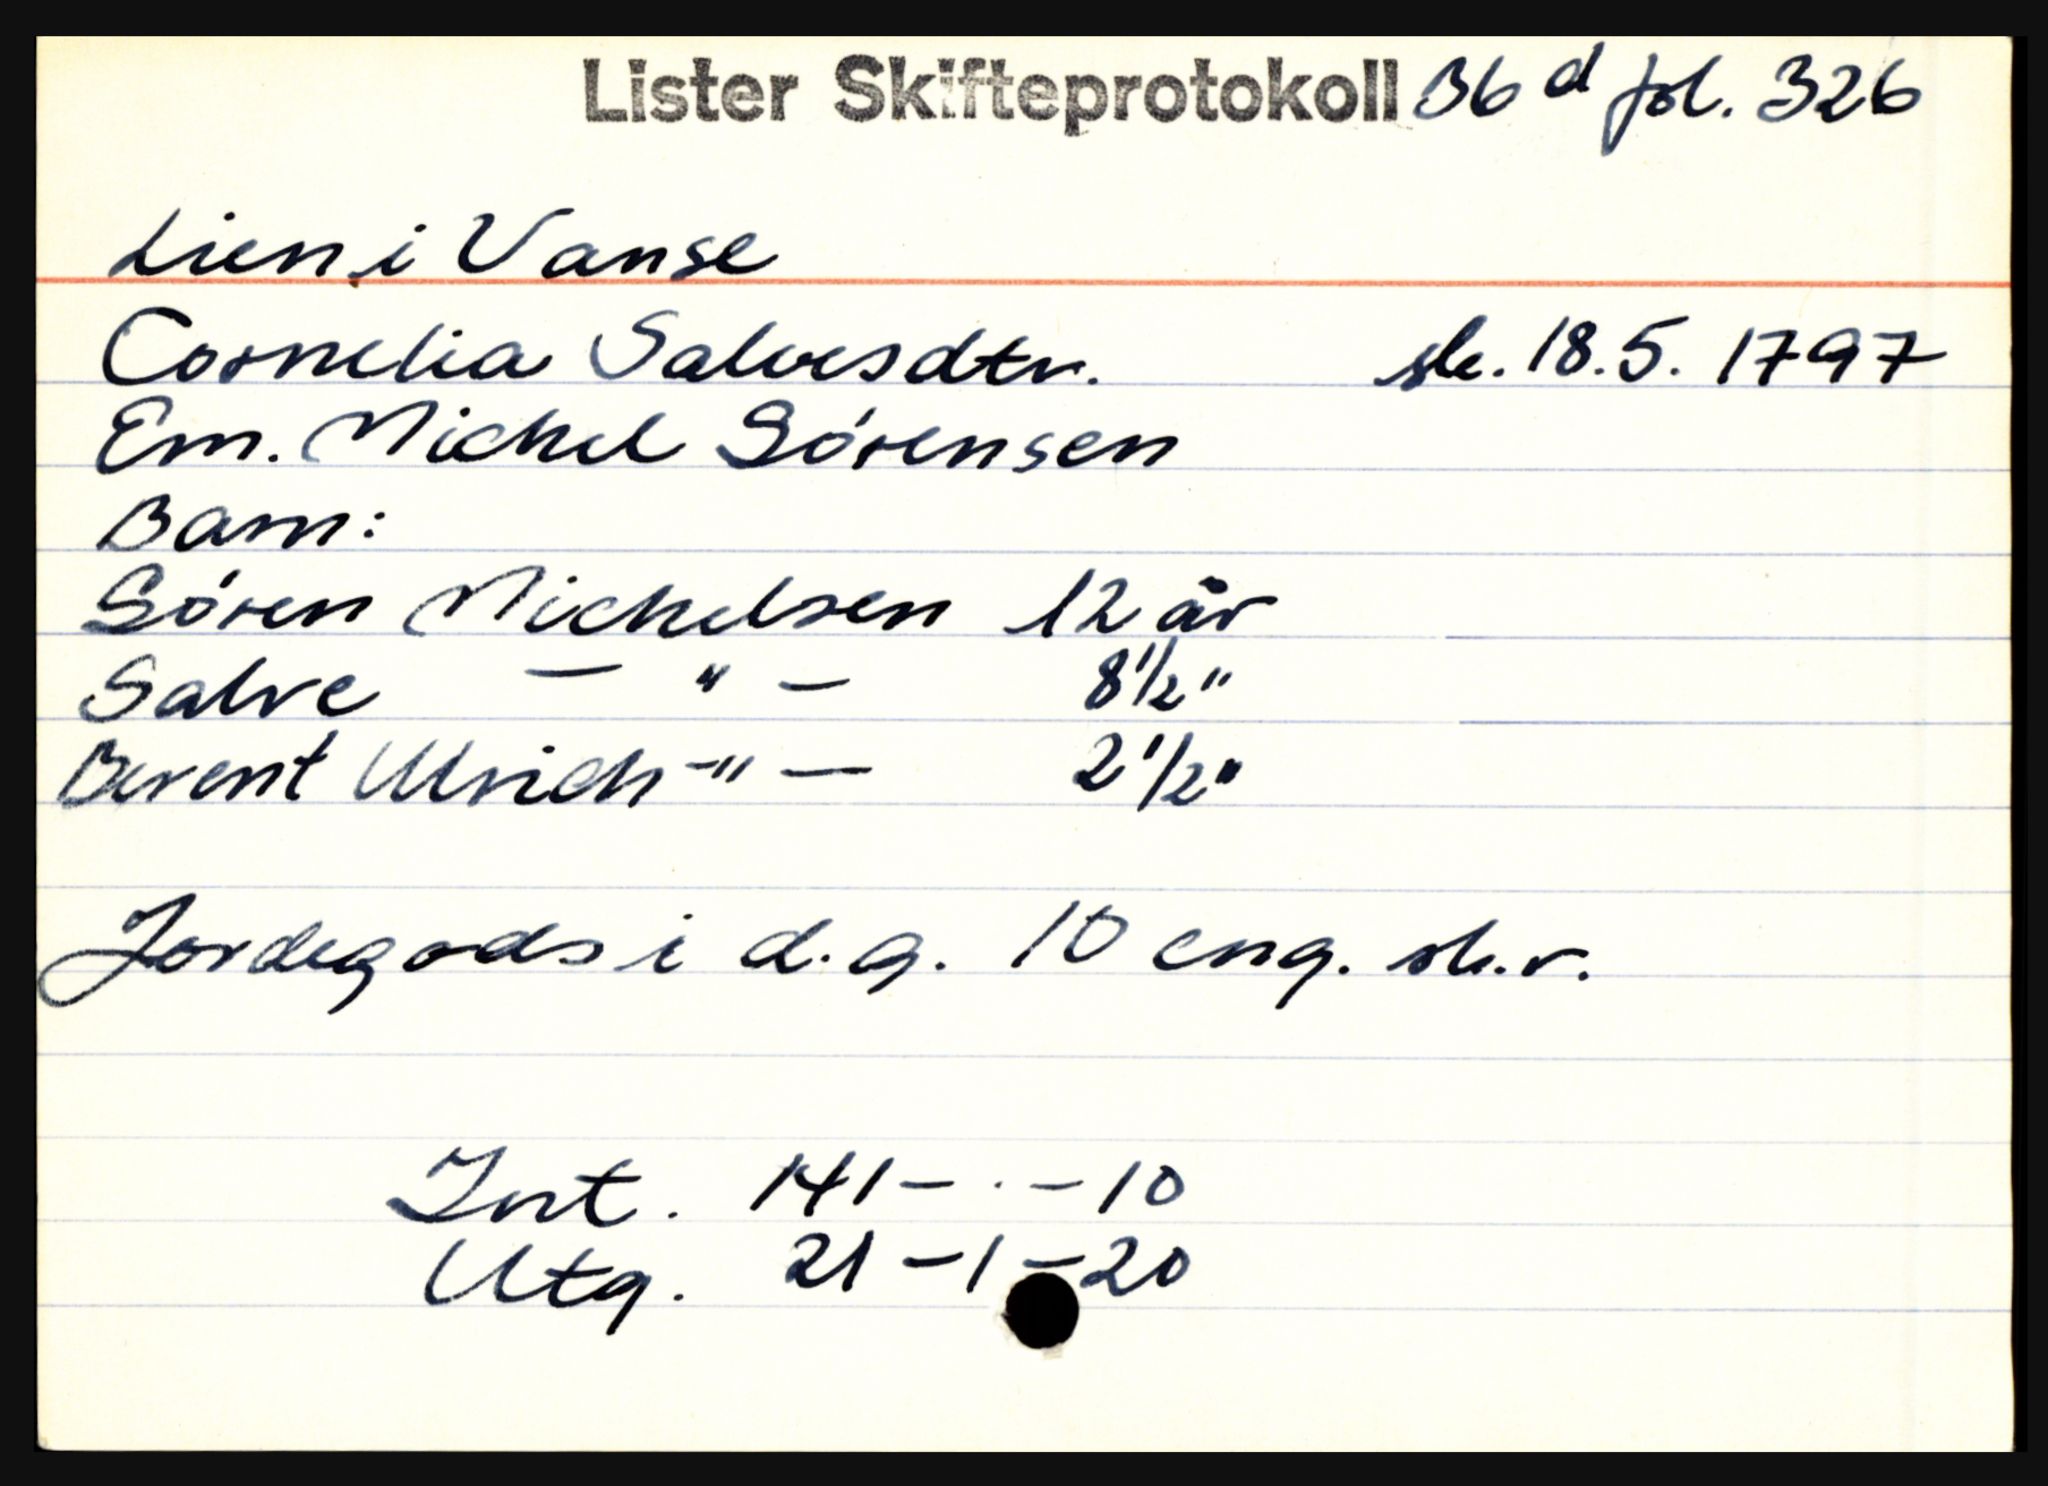 Lister Skifteprotokoll 36 d fol. 326
Lien i Vanse
Cornelia Salvesdtr. sk. 18.5.1797
Em. Michel Sörensen
Barn:
Sören Michelsen 12 år
Salve — " — 8 1/2 "
Berent Ulrich - " — 2 1/2 "
Jordegods i d.g. 10 eng. sk.r.
Int. 141 — · — 10
Utg. 21 — 1 — 20